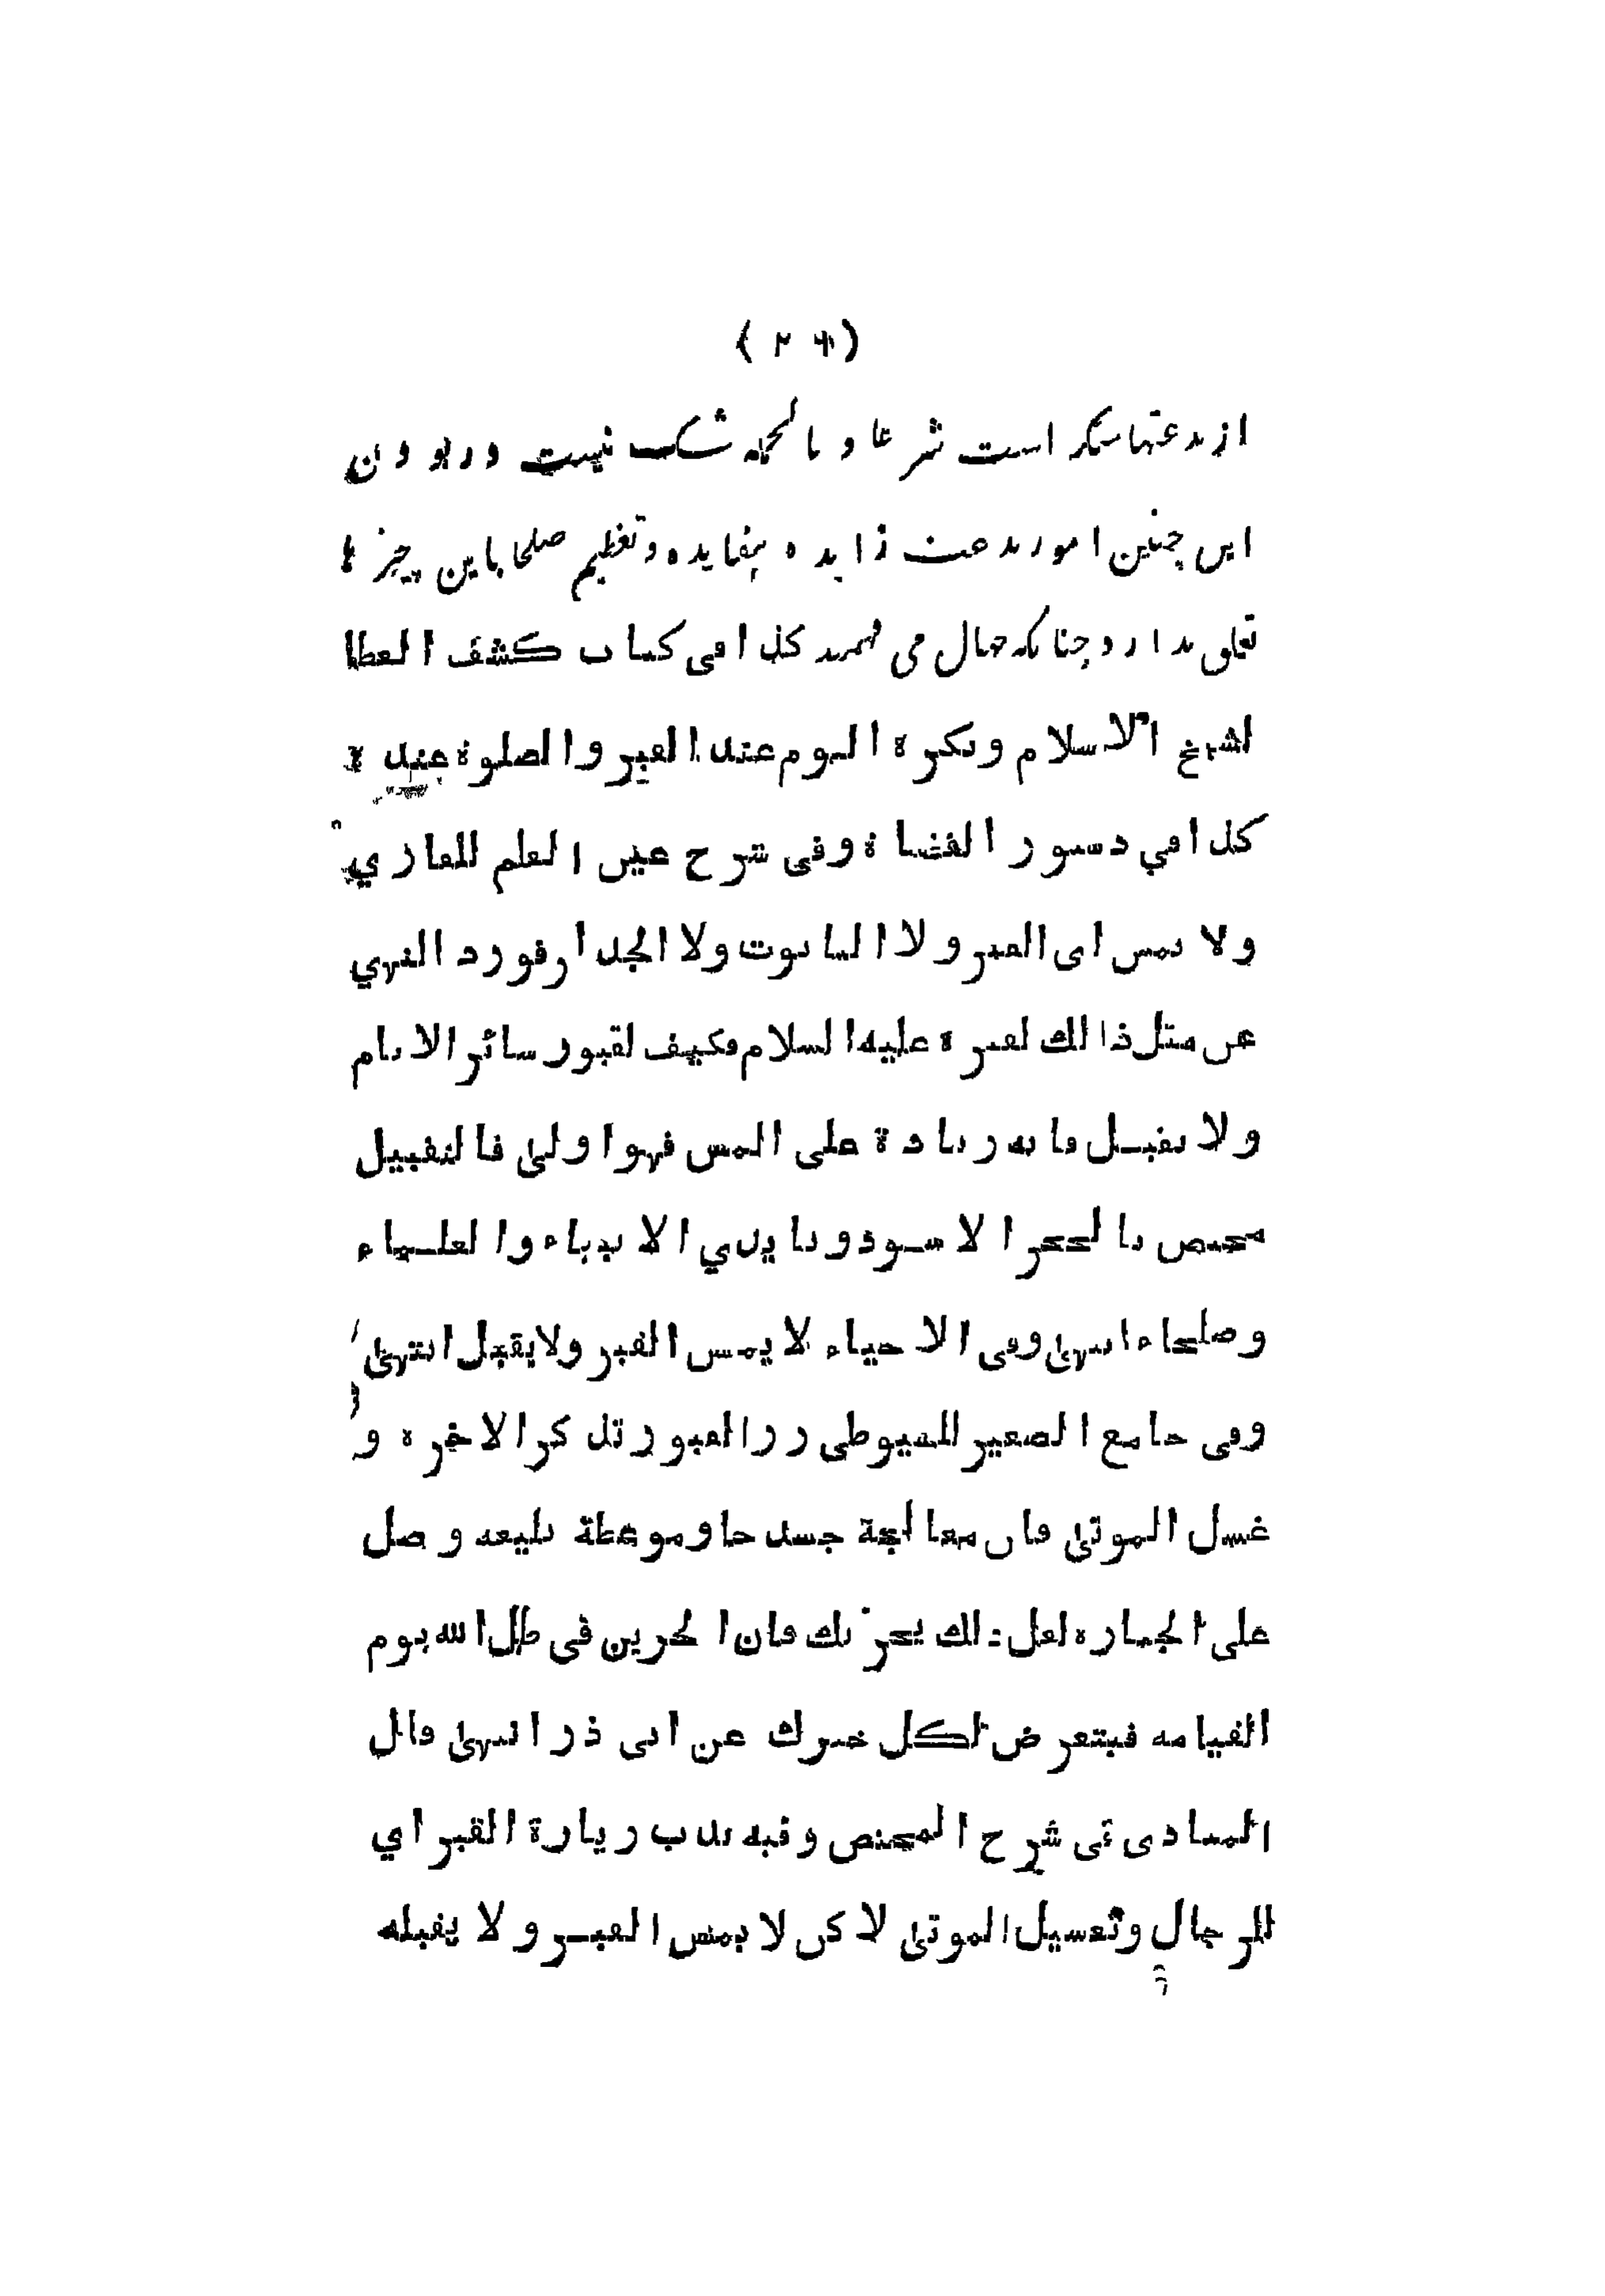 (۲۴)
از بدعتها منکر است شرعا و بالجمله شک نیست در بودن
این چنین امور بدعت زایده بیفایده و تعظیم صلحا باین چیز ها
تعلق ندارد چنانکه جهال می فهمند کذا فی کتاب کشف الغطا
لشیخ الاسلام ویکره النوم عند القبر والصلوة عنده
کذا فی دستور القضاة وفی شرح عین العلم للقاری
ولا یمس ای القبر ولا التابوت ولا الجدار فورد النهی
عن مثل ذالک لقبره علیه السلام فکیف لقبور سائر الانام
ولا یقبل فانه زیادة علی المس فهو اولی فالتقبیل
مختص بالحجر الاسود وبایدی الانبیاء والعلماء
وصلحاء انتهی وفی الاحیاء لا یمس القبر ولا یقبل انتهی
وفی جامع الصغیر للسیوطی زر القبور تذکر الاخره و
غسل الموتی فان معالجة جسد خاو موعظة بلیغه وصل
علی الجنازه لعل ذلک یحزنک فان الحزین فی ظل الله یوم
القیامه فیتعرض لکل خیرک عن ابی ذر انتهی قال
المنادی فی شرح المختص وفیه ندب زیارة القبر ای
للرجال وتغسیل الموتی لاکن لا یمس القبر ولا یقبله